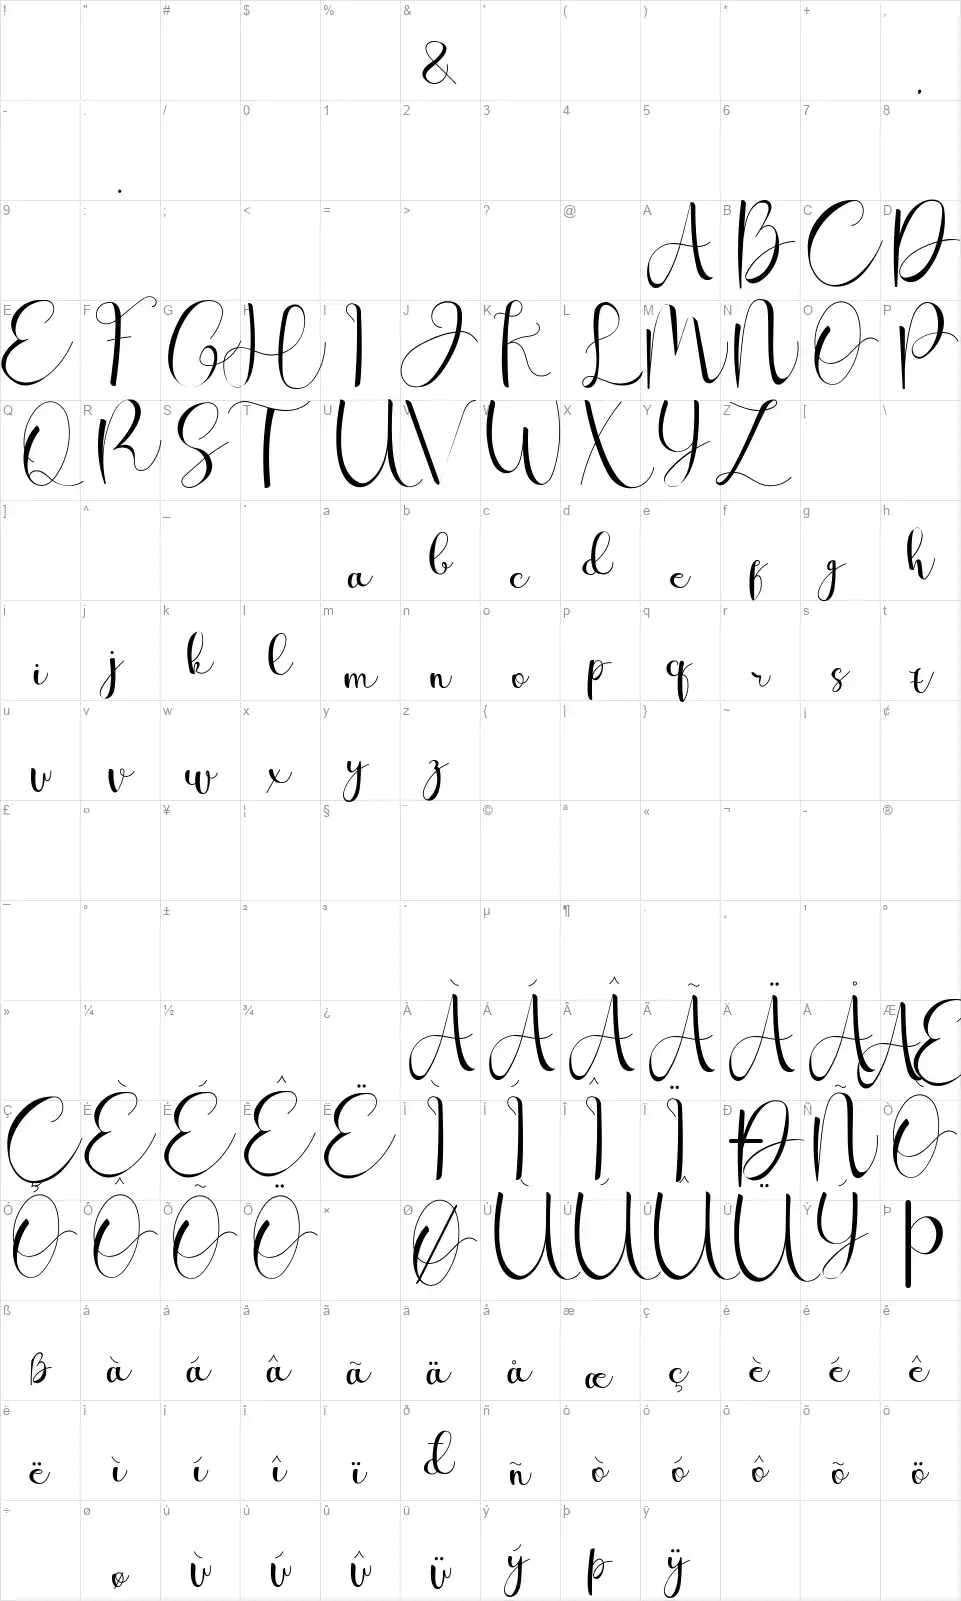 ! " # $ % & ' ( ) * + ,
&
,
- . / 0 1 2 3 4 5 6 7 8
.
9 : ; < = > ? @ A B C D
A B C D
E F G H I J K L M N O P
E F G H I J K L M N O P
Q R S T U V W X Y Z [ \
Q R S T U V W X Y Z
] ^ _ ` a b c d e f g h
a b c d e f g h
i j k l m n o p q r s t
i j k l m n o p q r s t
u v w x y z { | } ~ ¡ ¢
u v w x y z
£ ¤ ¥ ¦ § ¨ © ª « ¬ - ®
¯ ° ± ² ³ ´ µ ¶ · ¸ ¹ º
» ¼ ½ ¾ ¿ À Á Â Ã Ä Å Æ
À Á Â Ã Ä Å Æ
Ç È É Ê Ë Ì Í Î Ï Ð Ñ Ò
Ç È É Ê Ë Ì Í Î Ï Ð Ñ Ò
Ó Ô Õ Ö × Ø Ù Ú Û Ü Ý Þ
Ó Ô Õ Ö Ø Ù Ú Û Ü Ý Þ
ß à á â ã ä å æ ç è é ê
ß à á â ã ä å æ ç è é ê
ë ì í î ï ð ñ ò ó ô õ ö
ë ì í î ï ð ñ ò ó ô õ ö
÷ ø ù ú û ü ý þ ÿ
ø ù ú û ü ý þ ÿ